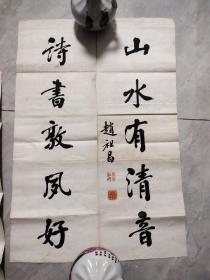 山水有清音
詩書敦風好
趙祖昌